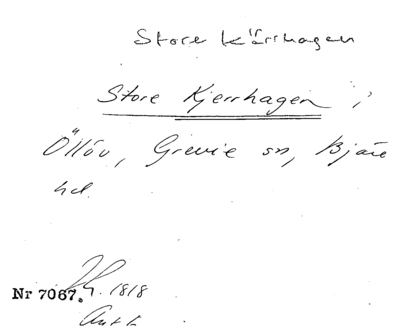 Store Kärrhagen
Store Kjerrhagen i
Öllöv, Grevie sn, Bjäre
hd.
Nr 7067. 1818